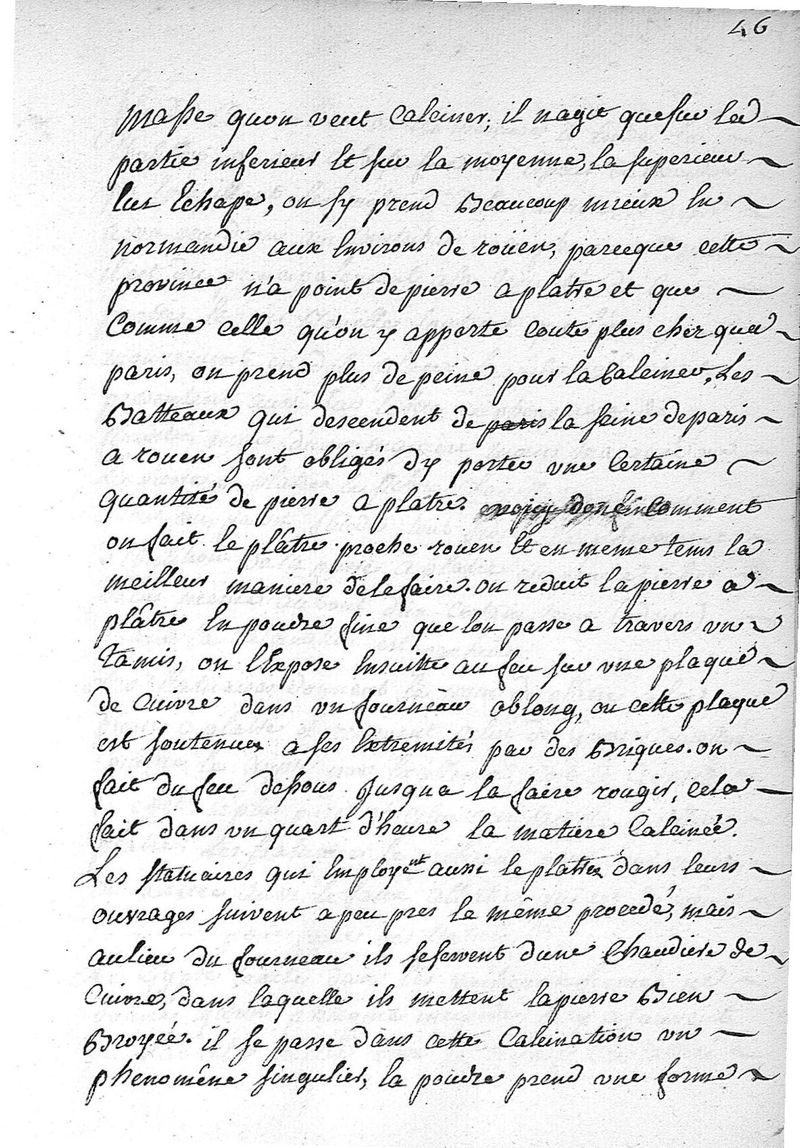 46
masse qu'on veut Calciner, il n'agit que sur la
partie inferieur Et sur la moyenne, la superieur
lui Echape, on s'y prend Beaucoup mieux En
normandie aux Environs de roüen, parceque cette
province n'a point de pierre a platre et que
Comme celle qu'on y apporte Coute plus cher qua
paris, on prend plus de peine pour la Calciner, Les
Batteaux qui descendent de paris la seine de paris
a rouen sont obligés d'y porter une Certaine
quantité de pierre a platre. Comment
on fait le plâtre proche rouen Et en meme tems la
meilleur maniere de le faire. on reduit la pierre a
plâtre En poudre fine que lon passe a travers un
Tamis, on l'Expose Ensuitte au feu sur une plaque
de Cuivre dans un fourneau oblong, ou cette plaque
est soutenue a ses Extremités par des Briques. on
fait du feu dessous Jusqua la faire rougir, cela
fait dans un quart d'heure la matiere Calcinée.
Les statuaires qui Employent aussi le platre dans leurs
ouvrages suivent a peu pres le même procedé, mais
aulieu du fourneau ils se servent d'une Chaudiere de
Cuivre, dans laquelle ils mettent la pierre Bien
Broyée. il se passe dans cette Calcination un
phenomêne singulier, la poudre prend une forme